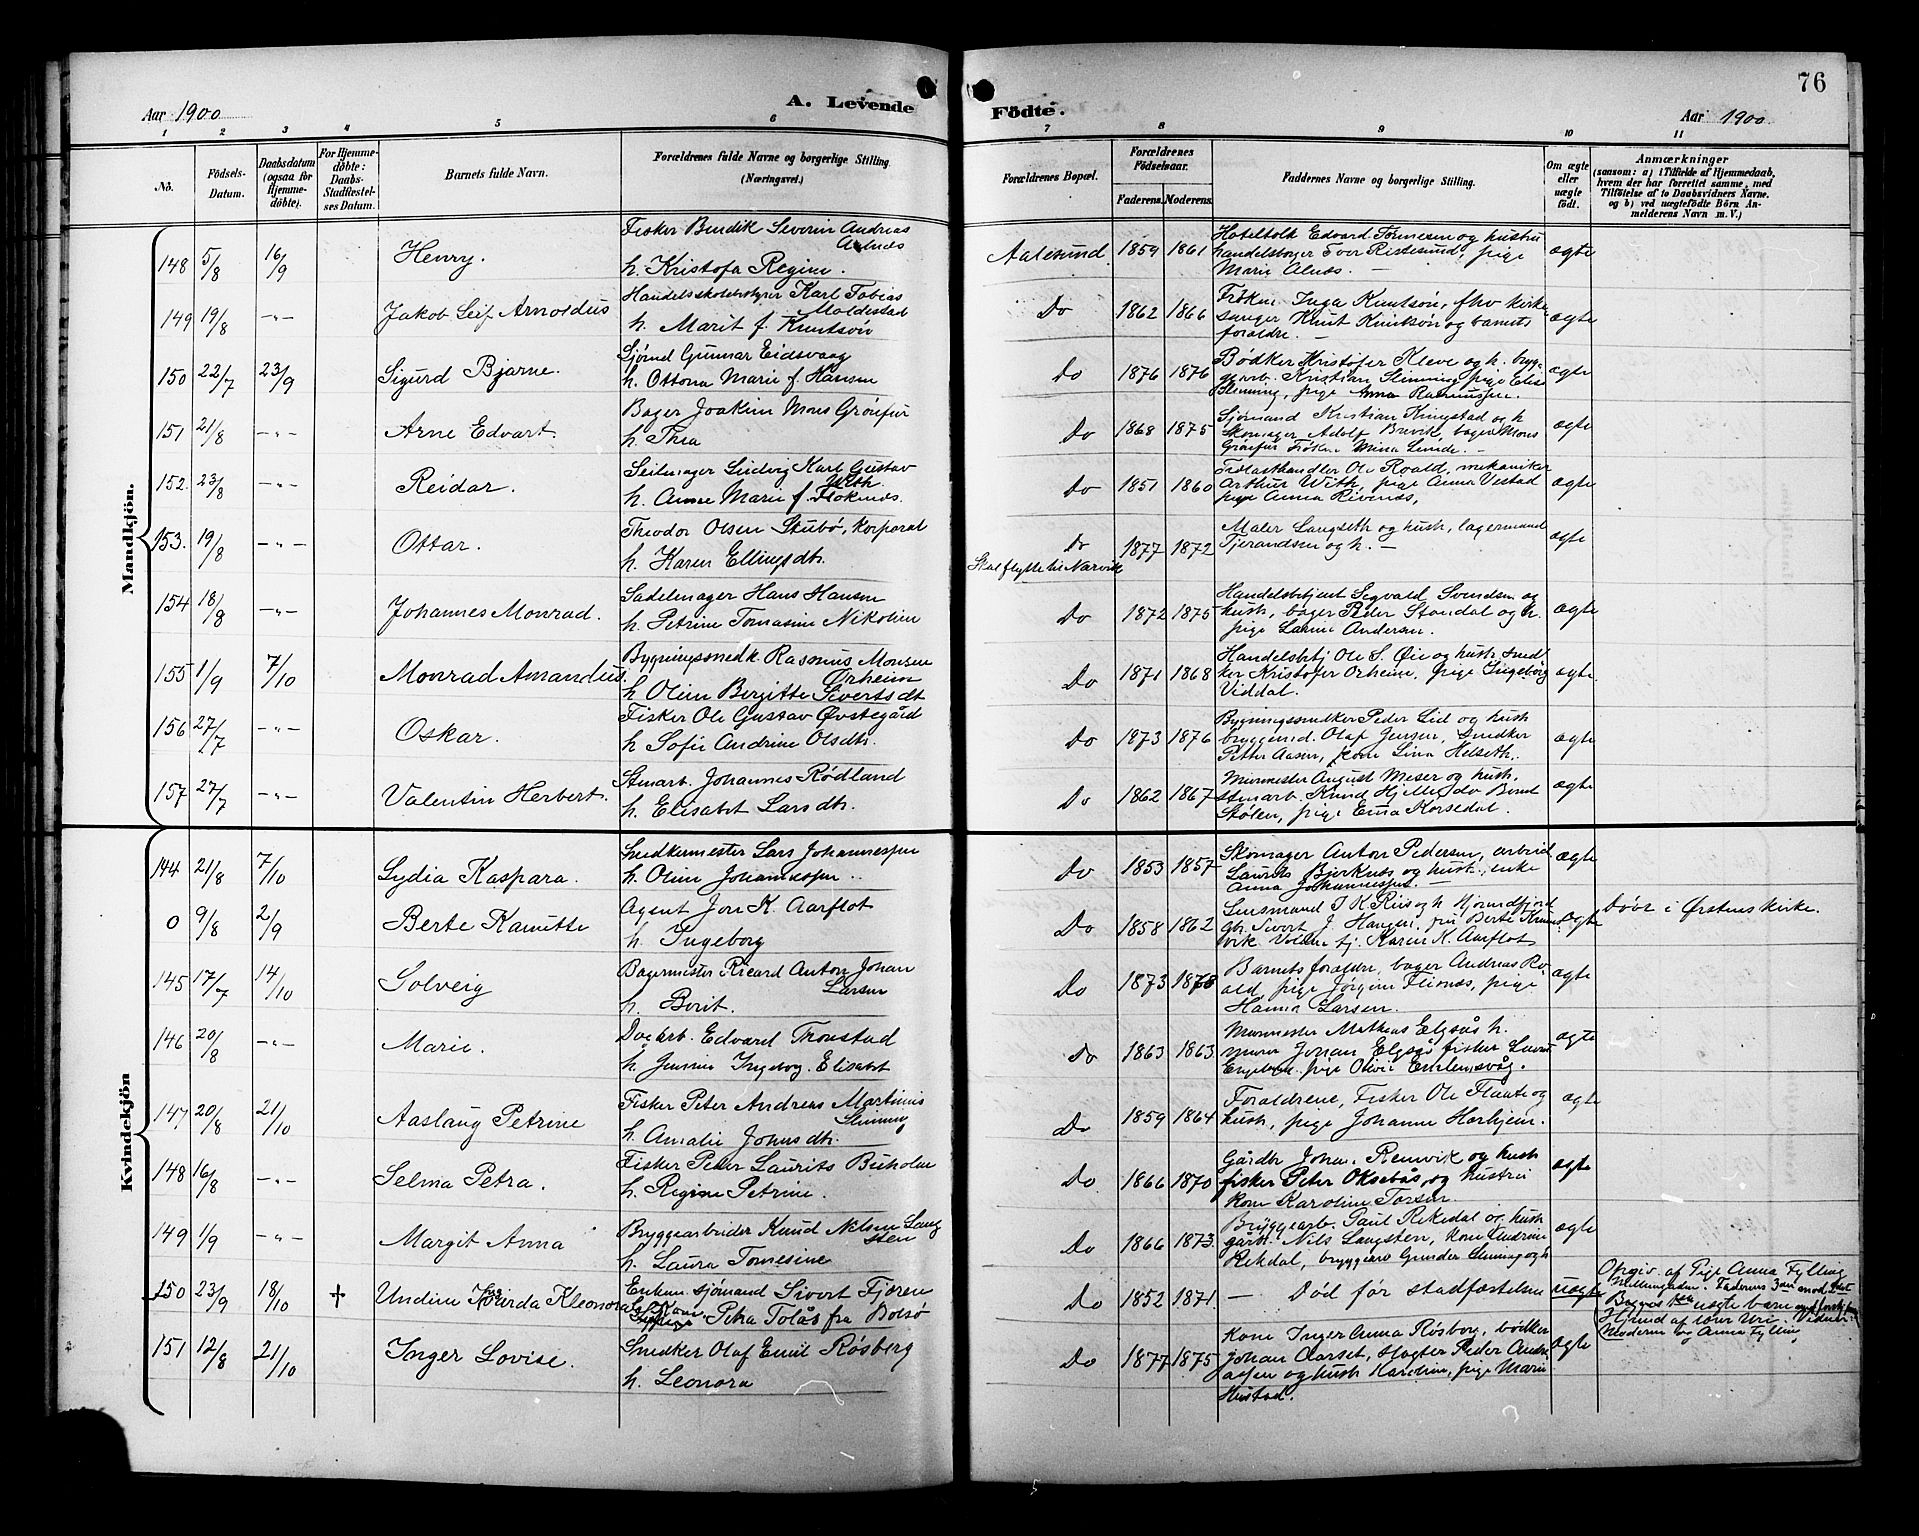 76
Aar 1900
A. Levende
Födte.
Aar 1900
1 2 3 4 5 6 7 8 9 10 11
No.
Födsels-
Datum.
Daabsdatum
(ogsaa for
Hjemme-
döbte).
For Hjemme-
döbte:
Daabs-
Stadfæstel-
ses Datum.
Barnets fulde Navn.
Forældrenes fulde Navne og borgerlige Stilling.
(Næringsvei.)
Forældrenes Bopæl.
Forældrenes
Födselsaar.
Faderens. Moderens.
Faddernes Navne og borgerlige Stilling.
Om ægte
eller
uægte
födt.
Anmærkninger
(saasom: a) i Tilfælde af Hjemmedaab,
hvem der har forrettet samme, med
Tilföielse af to Daabsvidners Navne,
og b) ved uægtefödte Börn An-
melderens Navn m. V.)
Mandkjön.
148 5/8 16/9 Henry.
Fisker Bendik Severin Andreas
Alnæs
h. Kristofa Regine.
Aalesund 1859 1861
Hotelfolk Edvard Tønnesen og hustru
handelsborger Tver Ristesund, pige
Marie Alnæs. —
ægte
149 19/8 —"— Jakob Leif Arnoldus
Handelsskolebestyrer Karl Tobias
Moldestad
h. Marit f. Knutson
Do 1862 1866
Frøken Inga Knutson, fhv kirke
sanger Knut Knutson og barnets
forældre. —
ægte
150 22/7 23/9 Sigurd Bjarne.
Sjømd Gunnar Eidsvaag
h. Ottona Marie f. Hansen
Do 1876 1876
Bødker Kristofer Kleve og h. brygg
arb. Kristian Slinning pige Elise
Slinning, pige Anna Rasmussen.
ægte
151 21/8 —"— Arne Edvart.
Bager Joakim Mons Grønfur
h. Thea
Do 1868 1875
Sjømand Kristian Ringstad og h
Skomager Adolf Brevik, bager Mons
Frøken Mina Lunde. —
ægte
152. 23/8 —"— Reidar.
Seilmager Ludvig Karl Gustav
With
h. Anne Marie f. Floknæs.
Do 1851 1860
Trælasthandler Ole Roald, mekaniker
Arthur With, pige Anna Vestad
pige Anna Rivenæs,
ægte
153. 19/8 —"— Ottar.
Theodor Olsen Stubø, korporal
h. Karen Ellingsdtr.
Do 1877 1872
Skal flytte til Narvik
Maler Langseth og hustr, lagermand
Tjerandsen og h. —
ægte
154 18/8 —"— Johannes Monrad.
Sadelmager Hans Hansen
h. Petrine Tomasine Nikolien
Do 1872 1875
Handelsbetjent Segvald Svendsen og
hustr, bager Peder Standal og h.
pige Larine Andersen.
ægte
155 1/9 7/10 Monrad Amandus.
Bygningssnedk. Rasmus Monsen
Ørheim
h. Oline Bergitte Sivertsdt
Do 1871 1868
Handelsbetj Ole S. Øie og hustr sned
ker Kristofer Orheim, pige Ingeborg
Viddal.
ægte
156 27/7 —"— Oskar.
Fisker Ole Gustav Øvstegård
h Sofie Andrine Olsdtr.
Do 1873 1876
Bygningssnedker Peder Lid og hustr
bryggemd. Olaf Jensen, Snedker
Petter Aasen, kone Lina Helseth.
ægte
157 27/7 —"— Valentin Herbert.
Stenarb. Johannes Rødland
h. Elisabet Larsdtr.
Do 1862 1867
Murmester August Meser og hustr.
stenarb. Knud Hjelle, do Bernt
Stølen, pige Erna Korsedal.
ægte
Kvindekjön
144 21/8 7/10 Lydia Kaspara.
Snedkermester Lars Johannessen
h. Oline Johannessen ..
Do 1853 1857
Skomager Anton Pedersen, arbeid
Laurits Bjerknæs og hustr., enke
Anna Johannessen. —
ægte
0 9/8 2/9 Berte Kamitte
Agent Jon K. Aarflot
h. Ingeborg
Do 1858 1862
Lensmand J K Riis og h Hjørundfjord
gbr. Sivert J. Haugen, fru Berte
vik Volden fj. Karen K. Aarflot
ægte Døbt i Ørstens kirke.
145 17/7 14/10 Solveig
Bagermester Ricard Anton Johan
Larsen
h. Berit.
Do 1873 1878
Barnets foraldre, bager Andreas Ro-
ald, pige Jørgine Flisnæs, pige
Hanna Larsen.
ægte
146 20/8 —"— Marie.
Dagarb. Edvard Tronstad
h Gunnie Ingeborg Elisabet
Do 1863 1863
Murmester Mathias Elgsås h.
murer Johan Elgsås fisker
pige Olivie Emlemsvåg.
ægte
147 20/8 21/10 Aaslaug Petrine
Fisker Peter Andreas Martinus
Slinning
h. Amalie Johnsdtr.
Do 1859 1864
Foraldrene, Fisker Ole Flaate og
hustr, pige Johanne Horhjem.
ægte
148 16/8 —"— Selma Petra.
Fisker Peter Laurits Buholm
h. Regine Petrine.
Do 1866 1870
Gårdbr Johan. Remvik og hustr
fisker Peter Oksebås, og hustru
kone Karoline Torsen.
ægte
149 1/9 —"— Margit Anna
Bryggearbeider Knud Nilsen Lang
sten
h. Laura Tomesine
Do 1866 1873.
Bryggearb. Paul Rekedal og hustr
gårbr. Nils Langsten, kone Andrine
Rekdal, bryggearb Gunder Slinning og h
ægte
150 23/9 18/10 † Undine Kleonora
Enkem. sjømand Sivert Fjøren
Pige Petra Tolås fra Bolsø
Do 1852 1871
— Død før stadfæstelsen
uægte
Opgiv. af Pige Anna Fylling
Begges uægte barn
Moderen og Anna Fylling
151 12/8 21/10 Inger Lovise.
Snedker Olaf Emil Røsberg
h. Leonora
Do 1877 1875
Kone Inger Anna Røsberg, bødker
Johan Aarset, Slagter Peder Andre
assen og hustr Karoline, pige Marie
Hustad.
ægte